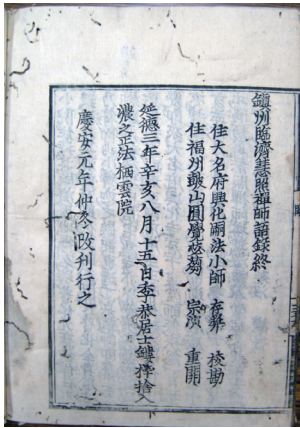 鎮州臨濟慧照禪師語録終
住大名府興化嗣法小師 存奬 挍勘
住福州皷山圓覺苾蒭 宗演 重開
延德三年辛亥八月十五日李恭居士鏤擇捨入
濃之正法栖雲院
慶安元年仲冬改刊行之